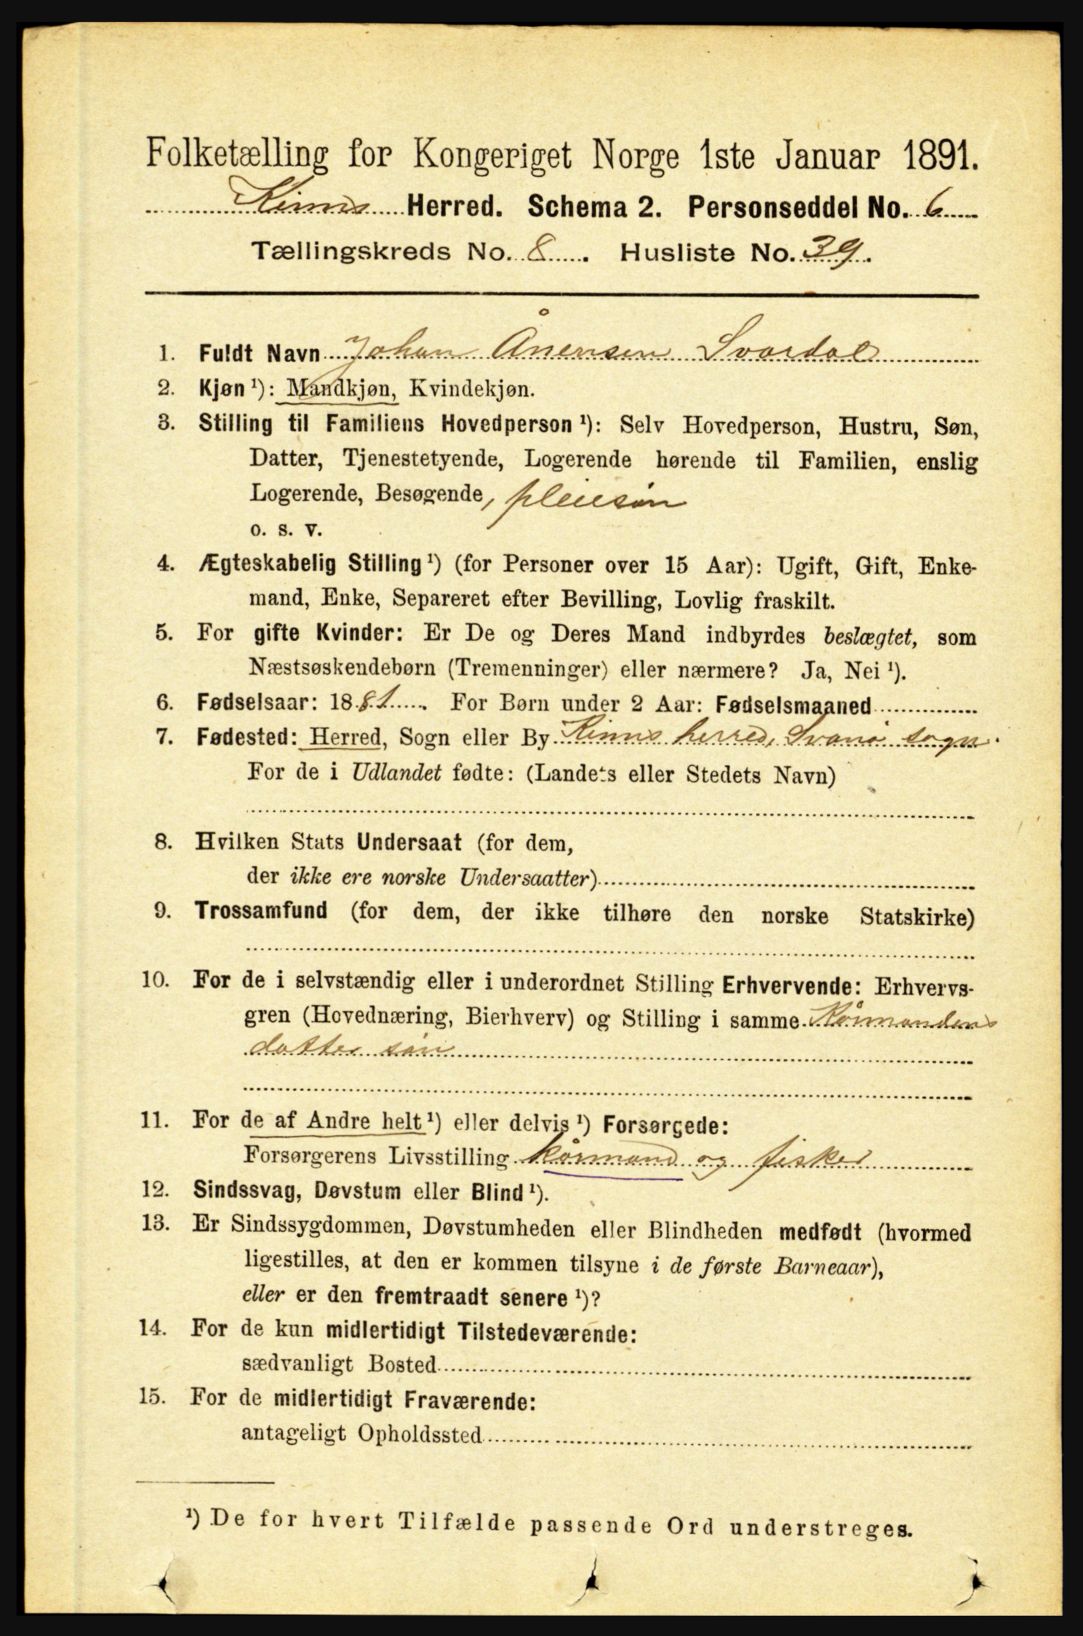 Folketælling for Kongeriget Norge 1ste Januar 1891.
Kinns Herred. Schema 2. Personseddel No. 6
Tællingskreds No. 8. Husliste No. 39.
1. Fuldt Navn Johan Ånensen Svardal
2. Kjøn ¹): Mandkjøn, Kvindekjøn.
3. Stilling til Familiens Hovedperson ¹): Selv Hovedperson, Hustru, Søn,
Datter, Tjenestetyende, Logerende hørende til Familien, enslig
Logerende, Besøgende, pleiesøn
o. s. v.
4. Ægteskabelig Stilling ¹) (for Personer over 15 Aar): Ugift, Gift, Enke-
mand, Enke, Separeret efter Bevilling, Lovlig fraskilt.
5. For gifte Kvinder: Er De og Deres Mand indbyrdes beslægtet, som
Næstsøskendebørn (Tremenninger) eller nærmere? Ja, Nei ¹).
6. Fødselsaar: 1881. For Børn under 2 Aar: Fødselsmaaned
7. Fødested: Herred, Sogn eller By Kinns herred, Svanø sogn.
For de i Udlandet fødte: (Landets eller Stedets Navn)
8. Hvilken Stats Undersaat (for dem,
der ikke ere norske Undersaatter)
9. Trossamfund (for dem, der ikke tilhøre den norske Statskirke)
10. For de i selvstændig eller i underordnet Stilling Erhvervende: Erhvervs-
gren (Hovednæring, Bierhverv) og Stilling i samme Kårmandens
datter søn
11. For de af Andre helt ¹) eller delvis ¹) Forsørgede:
Forsørgerens Livsstilling kårmand og fisker
12. Sindssvag, Døvstum eller Blind ¹).
13. Er Sindssygdommen, Døvstumheden eller Blindheden medfødt (hvormed
ligestilles, at den er kommen tilsyne i de første Barneaar),
eller er den fremtraadt senere ¹)?
14. For de kun midlertidigt Tilstedeværende:
sædvanligt Bosted
15. For de midlertidigt Fraværende:
antageligt Opholdssted
¹) De for hvert Tilfælde passende Ord understreges.